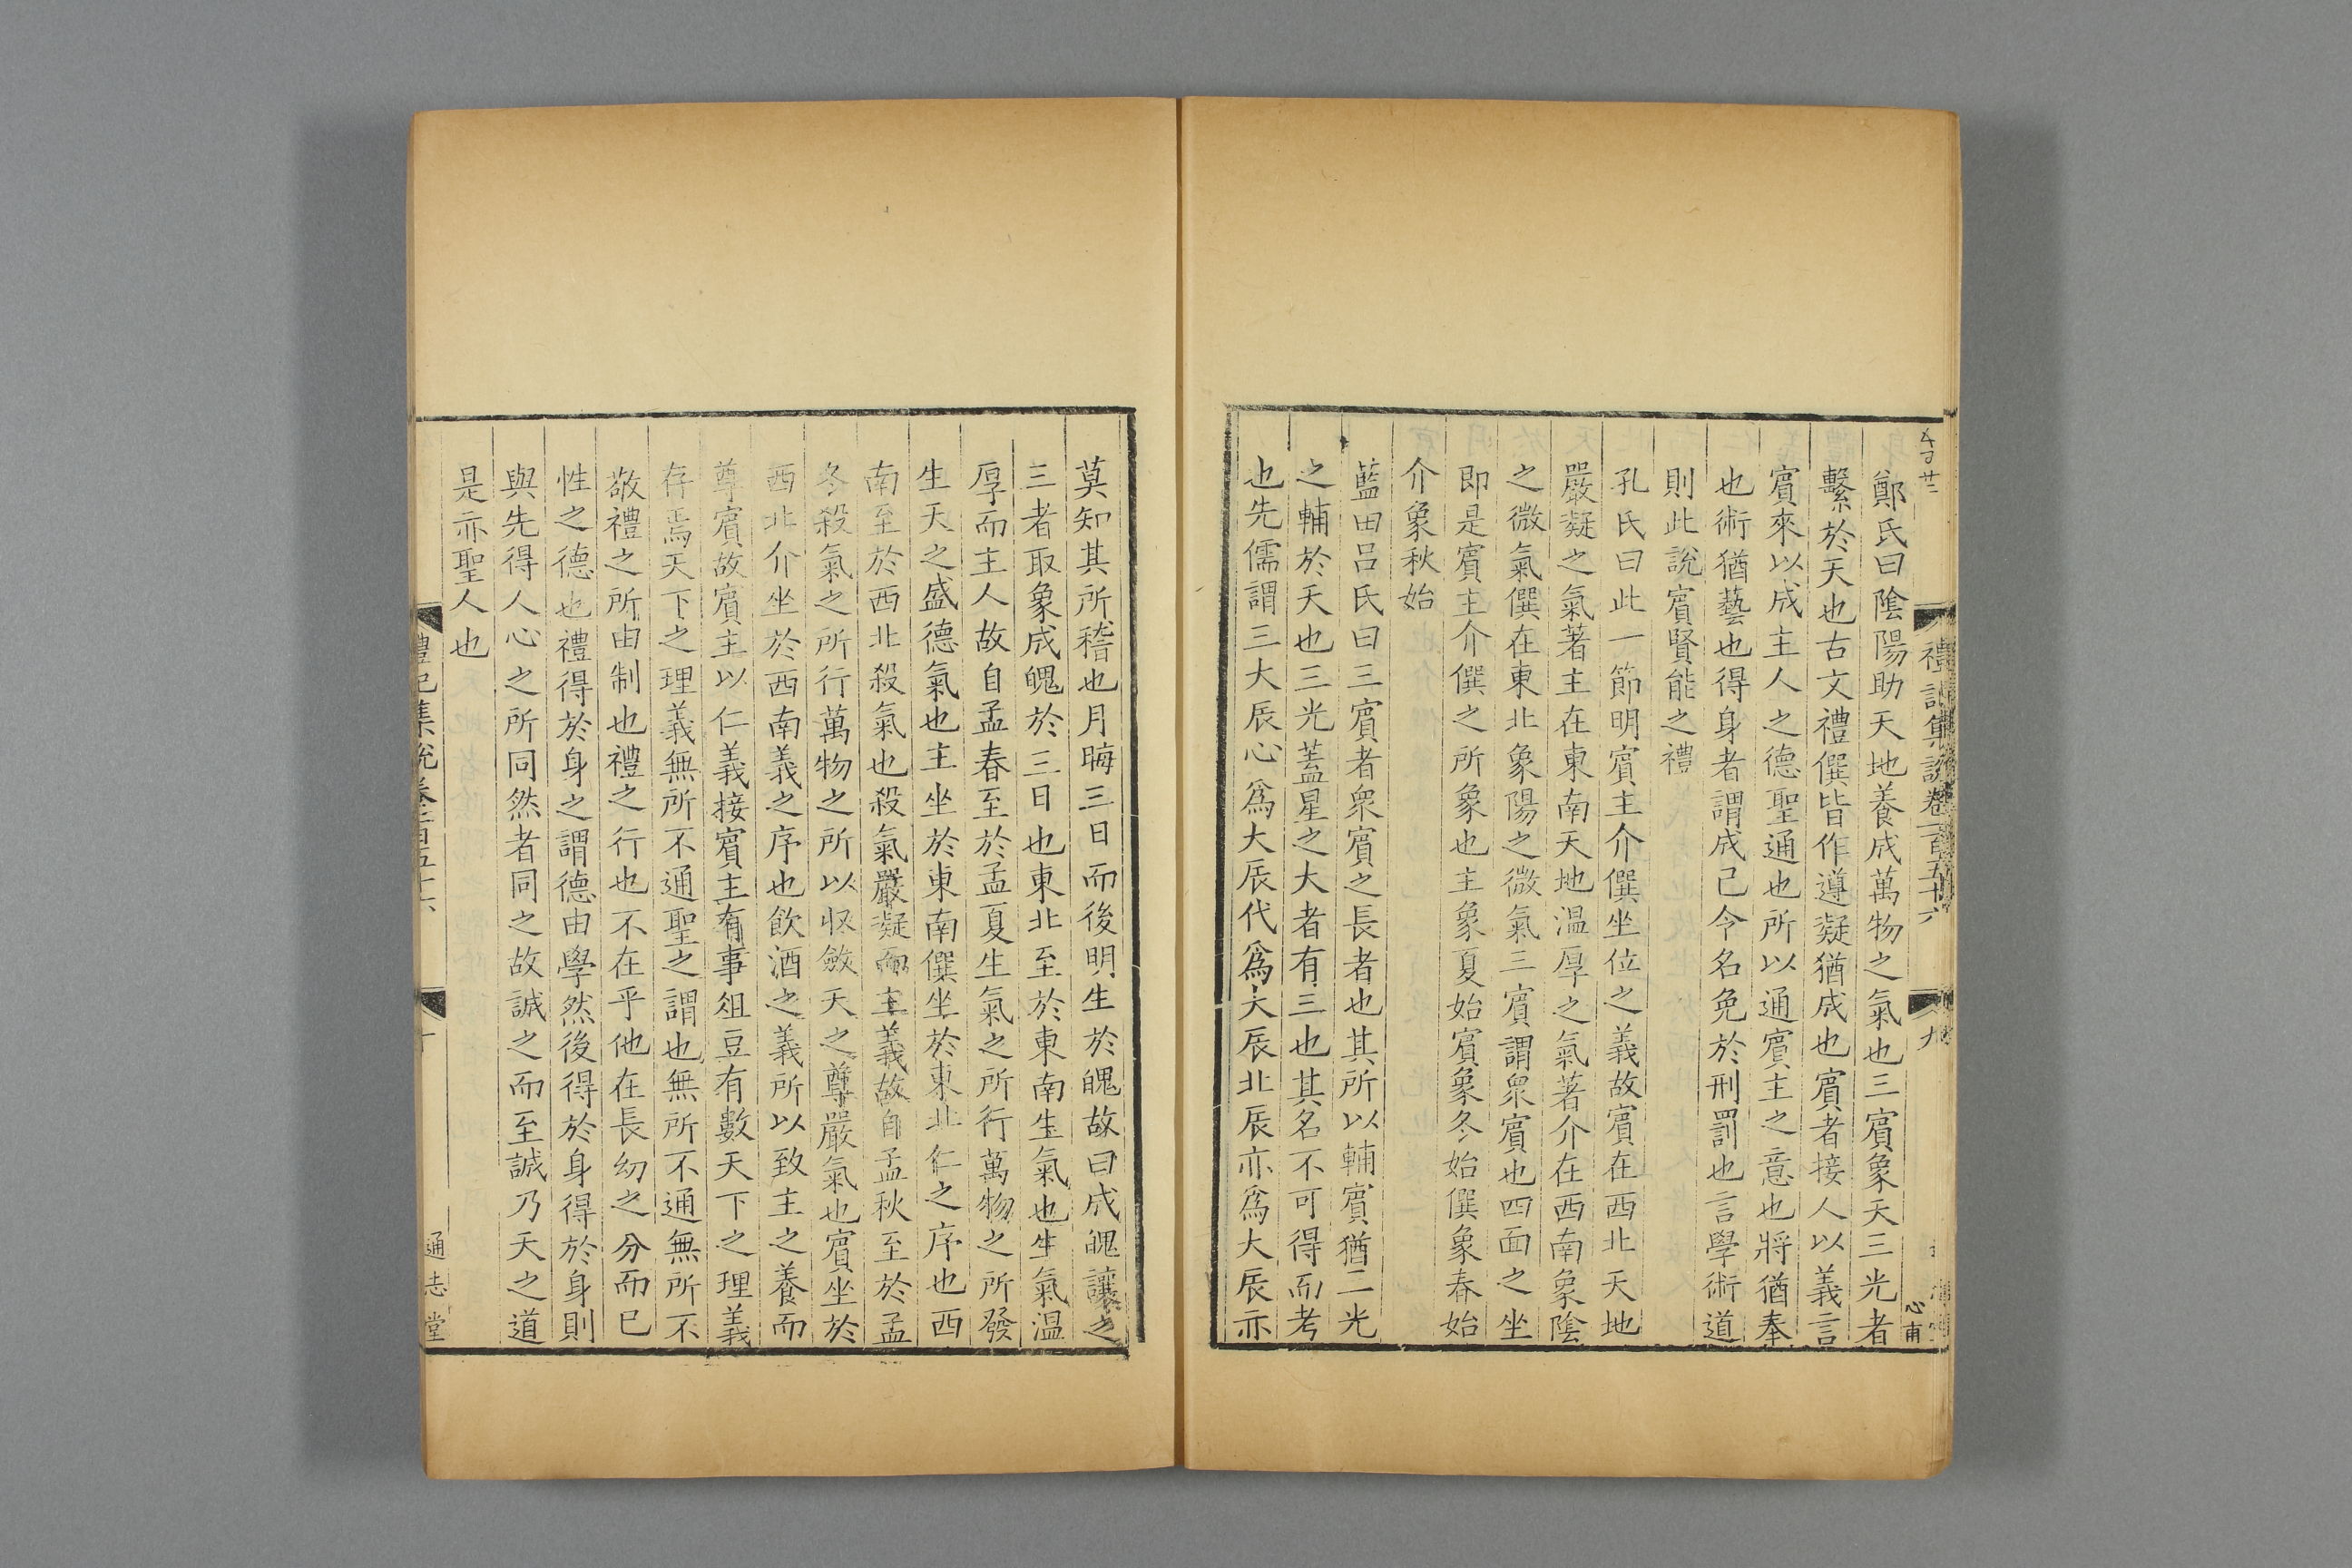 禮記集說卷一百五十六
九
心甫
鄭氏曰陰陽助天地養成萬物之氣也三賓象天三光者
繫於天也古文禮僎皆作遵凝猶成也賓者接人以義言
賓來以成主人之德聖通也所以通賓主之意也將猶奉
也術猶藝也得身者謂成己令名免於刑罰也言學術道
則此說賓賢能之禮
孔氏曰此一節明賓主介僎坐位之義故賓在西北天地
嚴凝之氣著主在東南天地温厚之氣著介在西南象陰
之微氣僎在東北象陽之微氣三賓謂衆賓也四面之坐
即是賓主介僎之所象也主象夏始賓象冬始僎象春始
介象秋始
藍田呂氏曰三賓者衆賓之長者也其所以輔賓猶三光
之輔於天也三光蓋星之大者有三也其名不可得而考
也先儒謂三大辰心爲大辰伐爲大辰北辰亦爲大辰亦
莫知其所稽也月晦三日而後明生於魄故曰成魄讓之
三者取象成魄於三日也東北至於東南生氣也生氣温
厚而主人故自孟春至於孟夏生氣之所行萬物之所發
生天之盛德氣也主坐於東南僎坐於東北仁之序也西
南至於西北殺氣也殺氣嚴凝而主義故自孟秋至於孟
冬殺氣之所行萬物之所以收斂天之尊嚴氣也賓坐於
西北介坐於西南義之序也飲酒之義所以致主之養而
尊賓故賓主以仁義接賓主有事俎豆有數天下之理義
存焉天下之理義無所不通聖之謂也無所不通無所不
敬禮之所由制也禮之行也不在乎他在長幼之分而已
性之德也禮得於身之謂德由學然後得於身得於身則
與先得人心之所同然者同之故誠之而至誠乃天之道
是亦聖人也
禮記集說卷一百五十六
十
通志堂